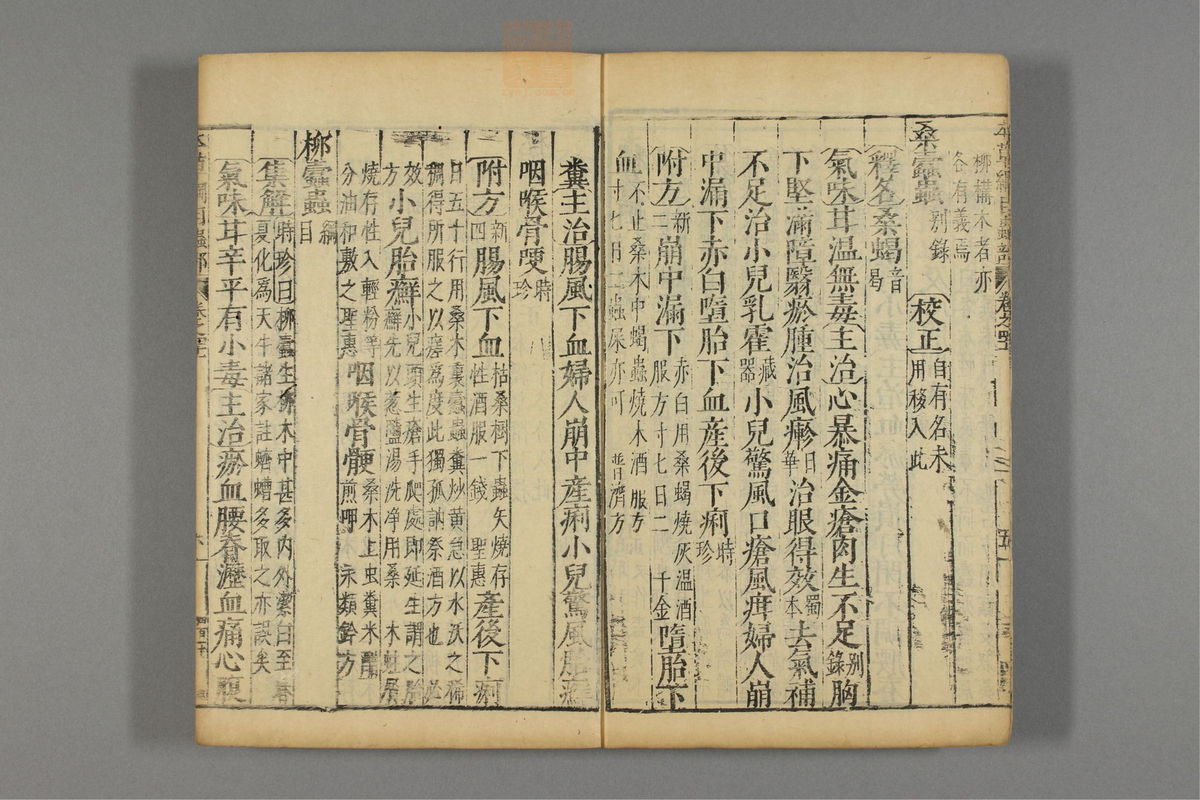 柳構木者亦各有義焉
桑蠹蟲 別錄 校正 自有名未用移入此
釋名 桑蝎 音曷
氣味 甘溫無毒 主治 心暴痛金瘡肉生不足 別錄 胸
下堅滿障翳瘀腫治風癥 日華 治眼得效 獨本 去氣補
不足治小兒乳霍 藏器 小兒驚風口瘡風疳婦人崩
中漏下赤白墮胎下血產後下痢 時珍
附方 新二 崩中漏下 赤白用桑蝎燒灰溫酒服方寸七日二 千金 墮胎下
血 不止桑木中蝎蟲燒末酒服方寸七日二蟲屎亦可 普濟方
糞 主治 腸風下血婦人崩中產痢小兒驚風胎癬
咽喉骨哽 時珍
附方 新四 腸風下血 枯桑樹下蟲矢燒存性酒服一錢 聖惠 產後下痢
日五十行用桑木裏蠹蟲糞炒黃急以水沃之稀稠得所服之以瘥為度此獨孤訥祭酒方也 必
效方 小兒胎癬 小兒頭生瘡手爬處即延生謂之胎癬先以葱鹽湯洗净用桑木蛀屑
燒存性入輕粉等分油和敷之 聖惠 咽喉骨骾 桑木上虫糞米醋煎呷 永類鈐方
柳蠹蟲 綱目
集解 時珍曰柳蠹生柳木中甚多內外潔白至春夏化為天牛諸家註蠐螬多取之亦誤矣
氣味 甘辛平有小毒 主治 瘀血腰脊瀝血痛心腹
本草綱目蟲部